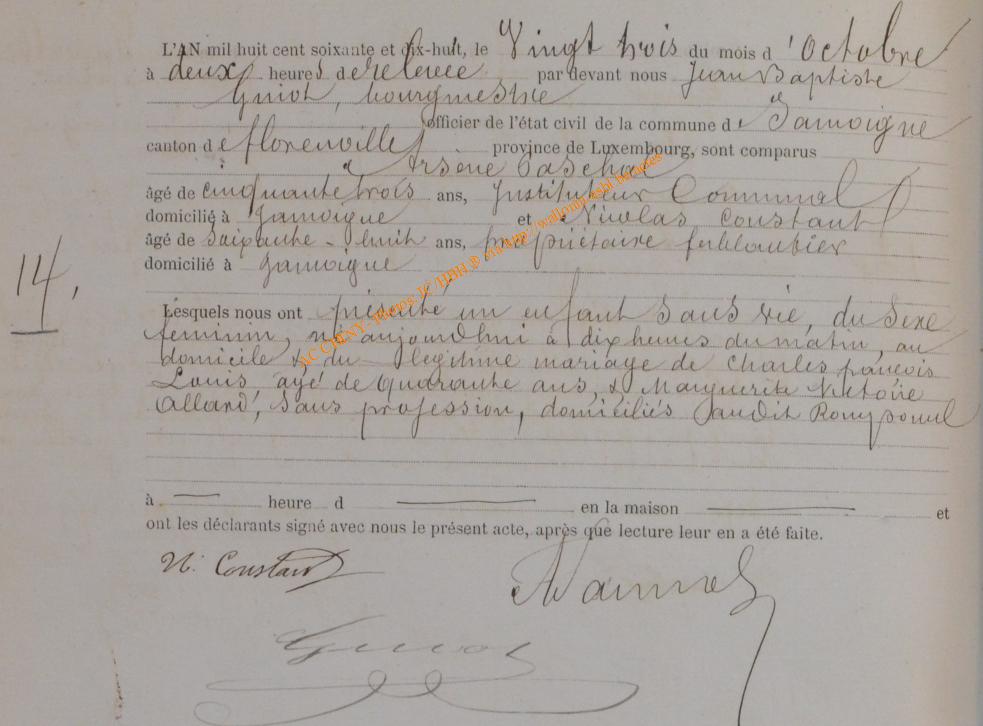 L'AN mil huit cent soixante et dix-huit, le Vingt trois du mois d'Octobre
à deux heures de relevée par devant nous Jean Baptiste
Guiot, bourgmestre
officier de l'état civil de la commune de Jamoigne
canton de florenville province de Luxembourg, sont comparus
Arsène
âgé de cinquante trois ans, Instituteur Communal
domicilié à Jamoigne et Nicolas Constant
âgé de Soixante-huit ans, propriétaire ferblantier
domicilié à Jamoigne
14.
Lesquels nous ont présenté un enfant sans vie, du sexe
feminin, né aujourd'hui à dix heures du matin, au
domicile & du legitime mariage de Charles françois
Louis âgé de quarante ans, & Marguerite Victoire
Allard, sans profession, domiciliés audit
à — heure d — en la maison — et
ont les déclarants signé avec nous le présent acte, après que lecture leur en a été faite.
N. Constant
Guiot